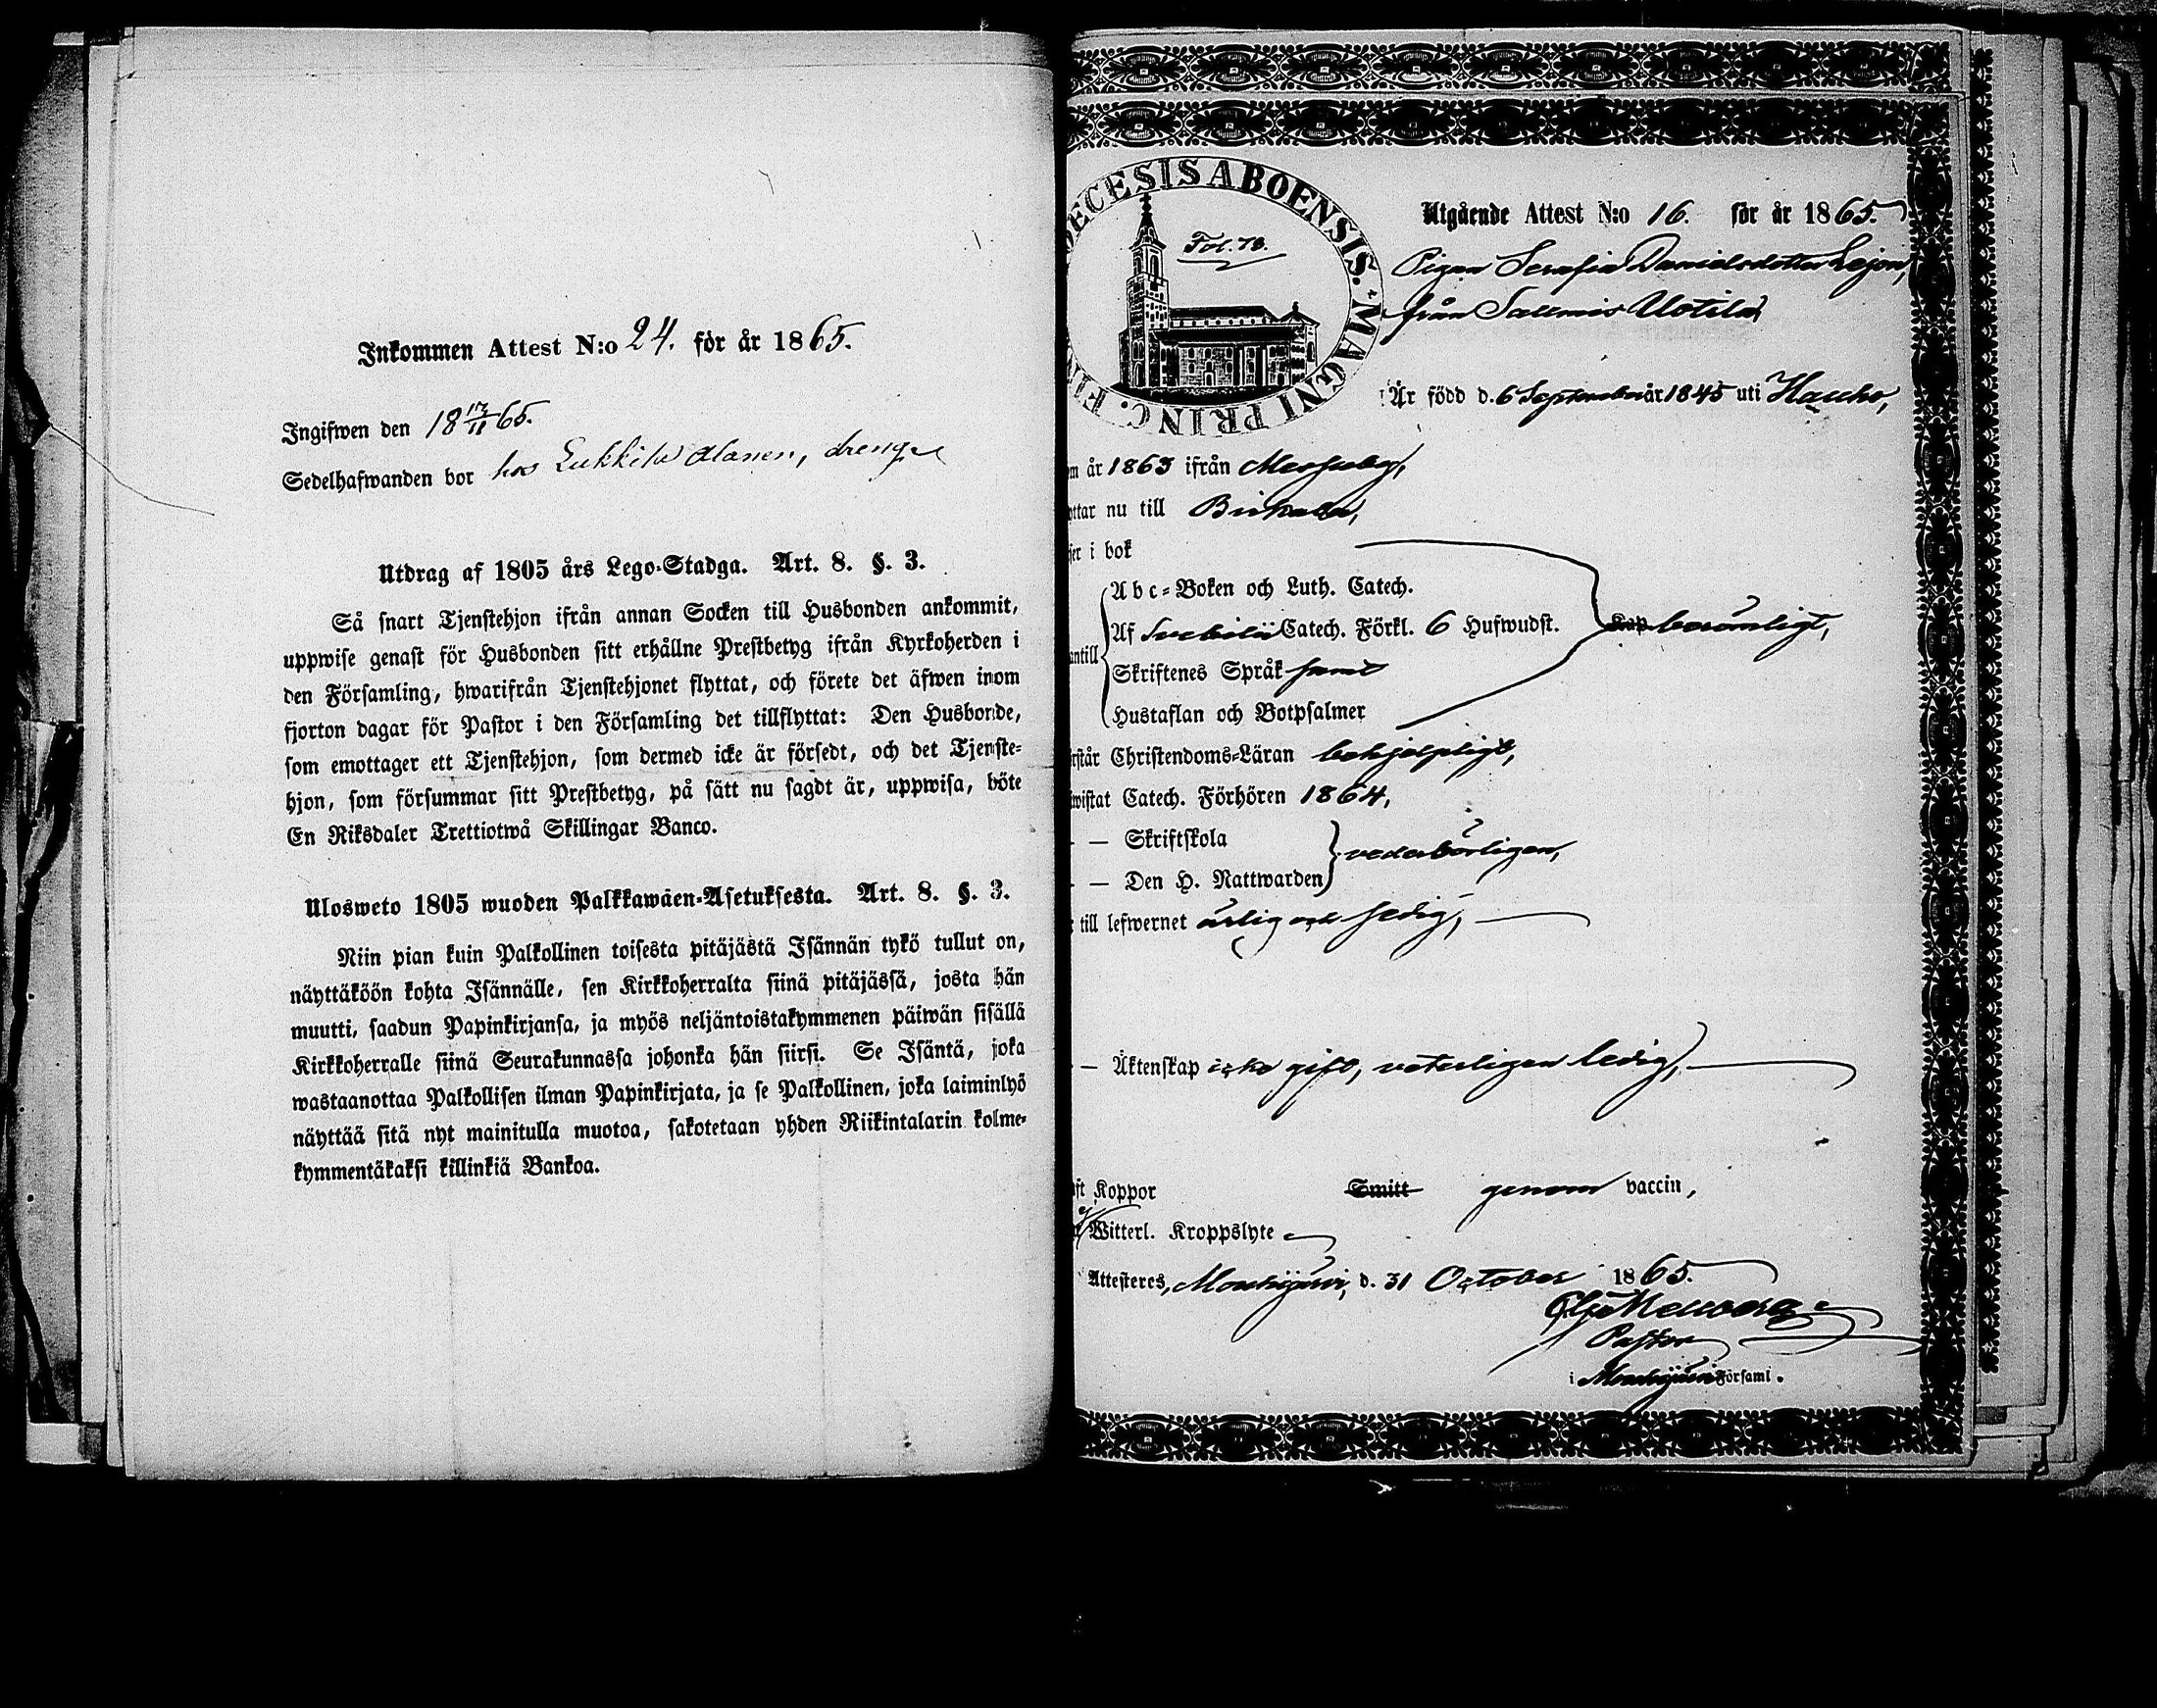 Inkommen Attest N:o 24. för år 1865.
Ingifwen den 18 17/11 65.
Sedelhafwanden bor hos Lukkila Alanen, dreng
Utdrag af 1805 års Lego-Stadga. Art. 8. §. 3.
Så snart Tjenstehjon ifrån annan Socken till Husbonden ankommit,
uppwise genast för Husbonden sitt erhållne Prestbetyg ifrån Kyrkoherden i
den Församling, hwarifrån Tjenstehjonet flyttat, och förete det äfwen inom
fjorton dagar för Pastor i den Församling det tillflyttat: Den Husbonde,
som emottager ett Tjenstehjon, som dermed icke är försedt, och det Tjenste-
hjon, som försummar sitt Prestbetyg, på sätt nu sagdt är, uppwisa, böte
En Riksdaler Trettiotwå Skillingar Banco.
Ulosweto 1805 wuoden Palkkawäen-Asetuksesta. Art. 8. §. 3.
Niin pian kuin Palkollinen toisesta pitäjästä Isännän tykö tullut on,
näyttäköön kohta Isännälle, sen Kirkkoherralta siinä pitäjässä, josta hän
muutti, saadun Papinkirjansa, ja myös neljäntoistakymmenen päiwän sisällä
Kirkkoherralle siinä Seurakunnassa johonka hän siirsi. Se Isäntä, joka
wastaanottaa Palkollisen ilman Papinkirjata, ja se Palkollinen, joka laiminlyö
näyttää sitä nyt mainitulla muotoa, sakotetaan yhden Riikintalarin kolme-
kymmentäkaksi killinkiä Bankoa.
ECESIS ABOENSIS. * MAGNI PRINC. FIN
Fol. 78.
Utgående Attest N:o 16. för år 1865.
Pigan Serafia Danielsdotter Lejon,
från Sallmis Uotila,
Är född d. 6 September år 1845 uti Hauho,
m år 1863 ifrån Messuby,
ottar nu till Birkala,
jer i bok
Abc-Boken och Luth. Catech.
Af Svebilii Catech. Förkl. 6 Hufwudst. berömligt,
antill
Skriftenes Språk samt
Hustaflan och Botpsalmer
rstår Christendoms-Läran behjelpligt,
wistat Catech. Förhören 1864,
— — Skriftskola
vederbörligen,
— — Den H. Nattwarden
till lefwernet ärlig och sedig,
— Äktenskap icke gift, veterligen ledig,
ft Koppor Smitt genom vaccin,
Witterl. Kroppslyte
Attesteres, Mouhijärvi, d. 31 October 1865.
Pastor
i Mouhijärvi Församl.